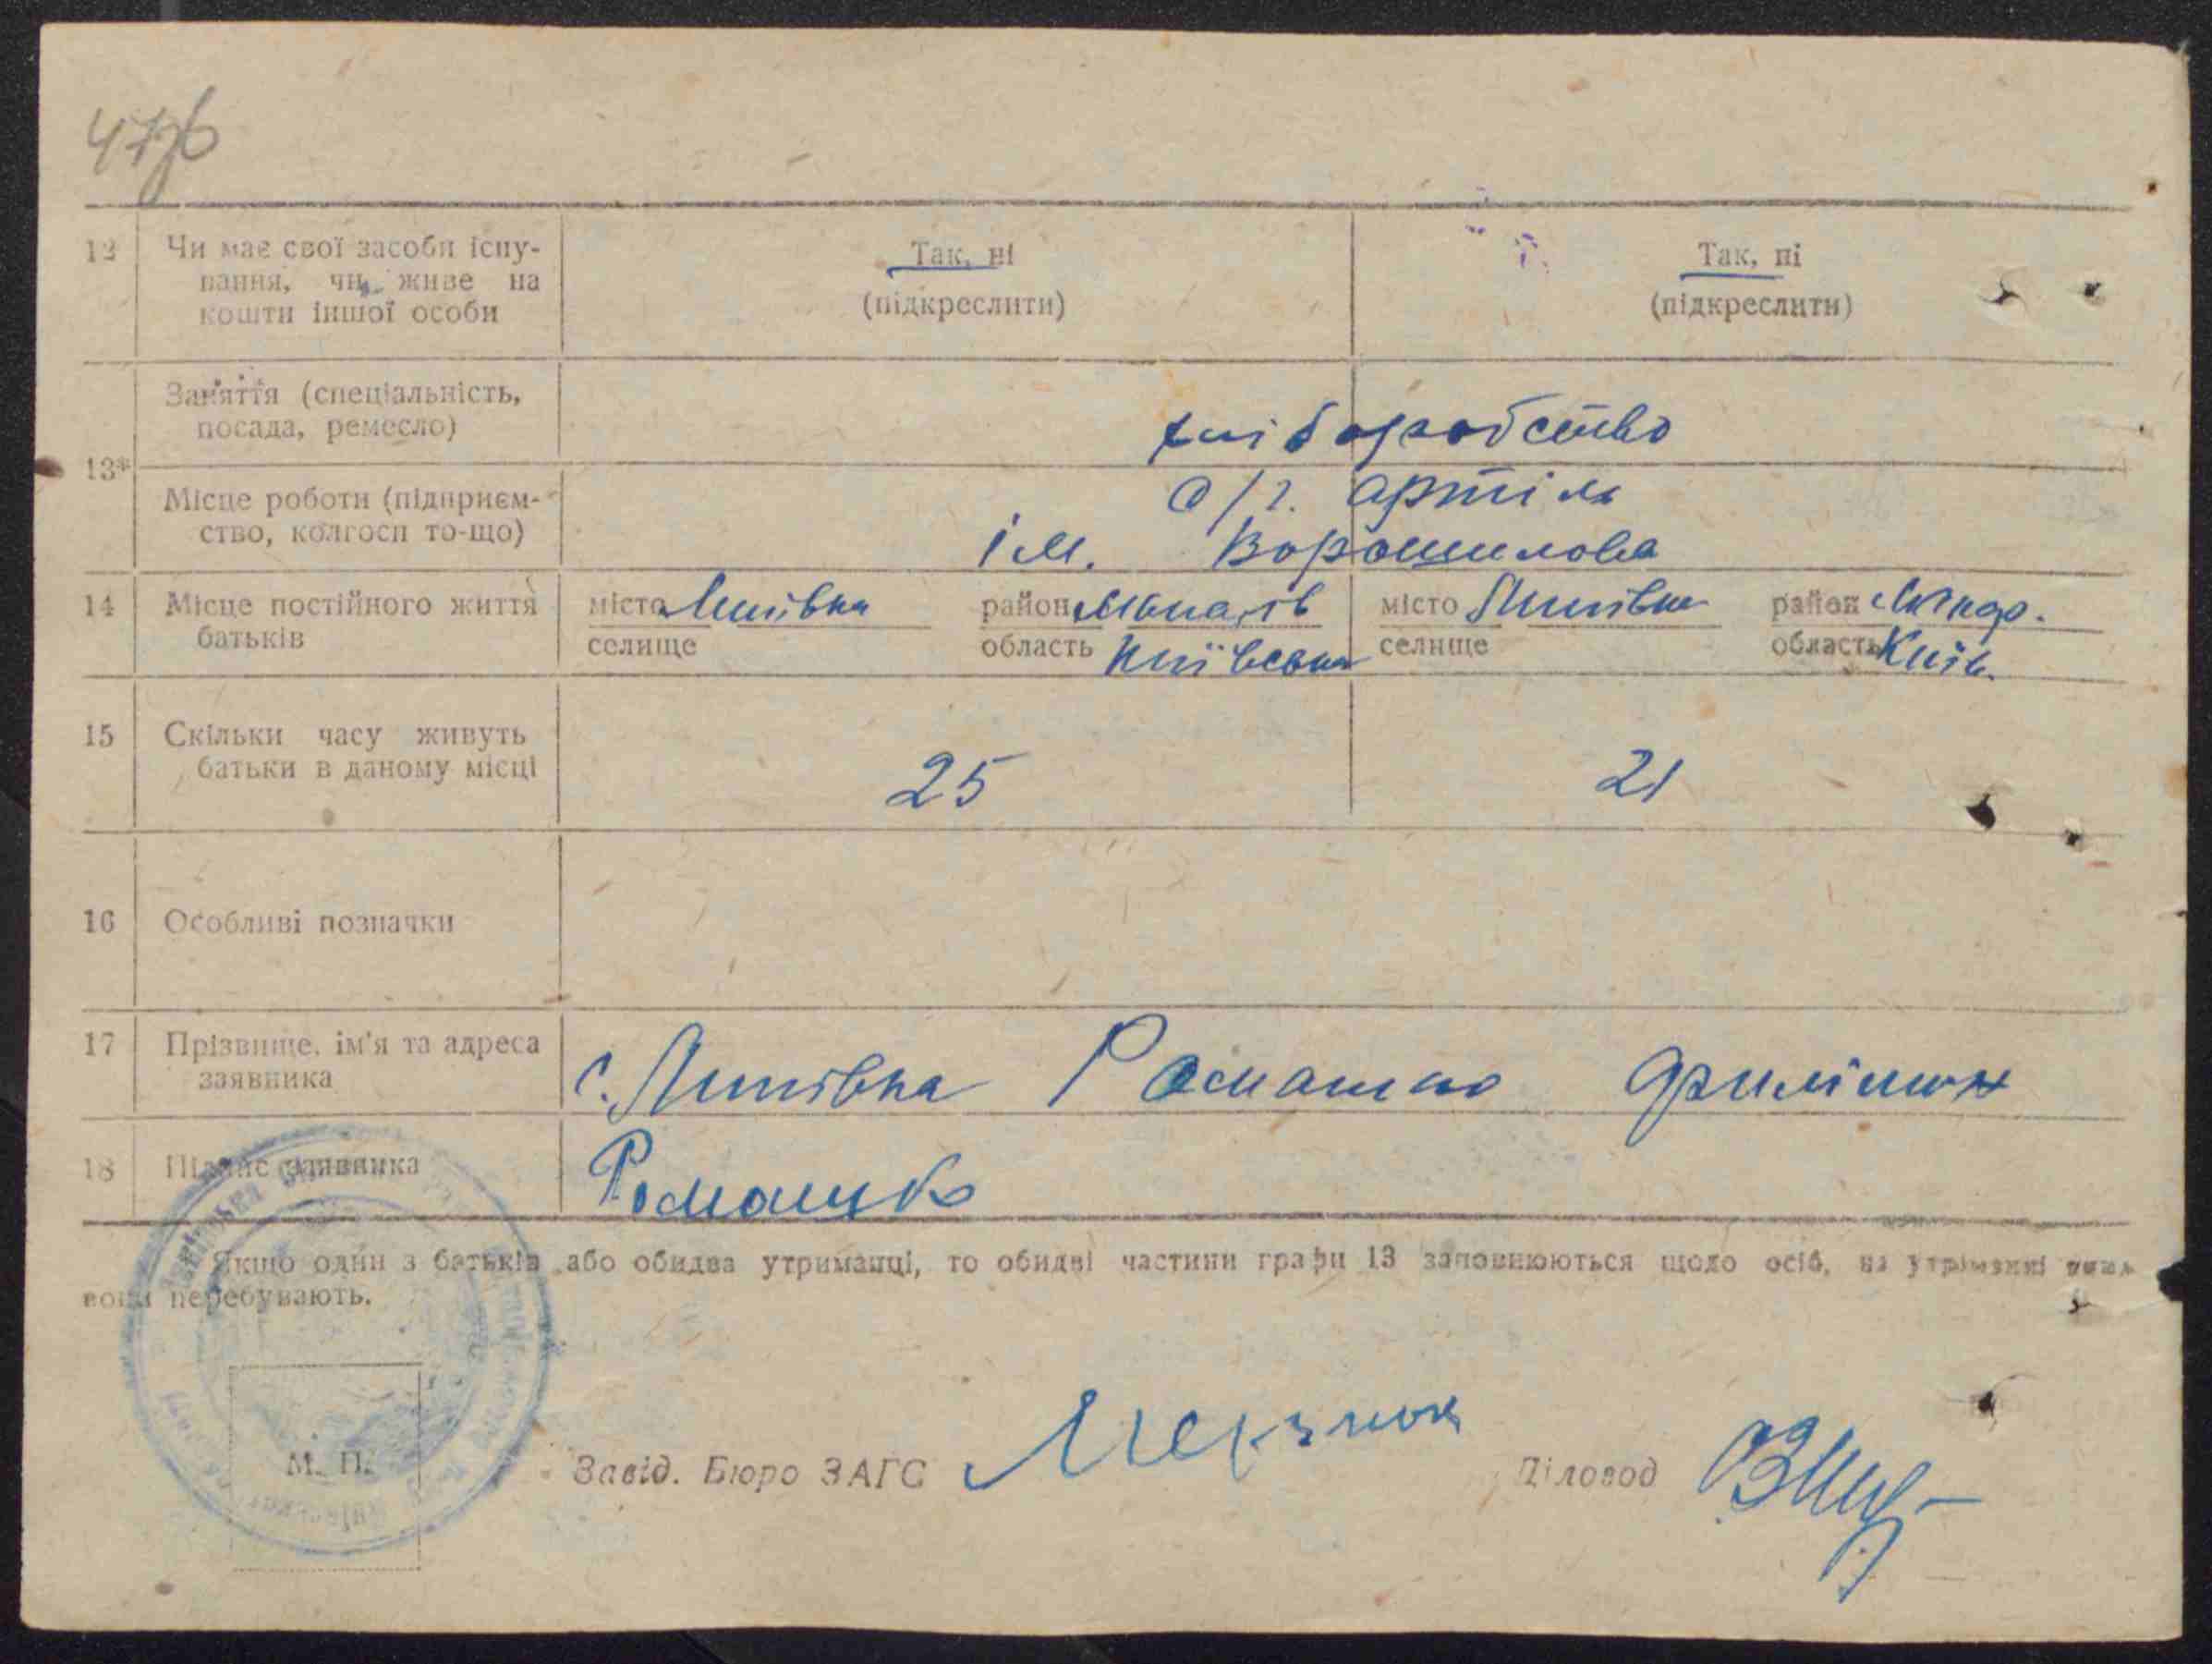 12 Чи має свої засоби існу-
вання, чи живе на
кошти іншої особи
Так, ні
(підкреслити)
Так, ні
(підкреслити)
13*
Заняття (спеціальність,
посада, ремесло)
хліборобство
Місце роботи (підприєм-
ство, колгосп то-що)
с/г. артіль
ім. Ворошилова
14 Місце постійного життя
батьків
місто Липівка район Макарів
селище область Київська
місто Липівка район Макар.
селище область Київ.
15 Скільки часу живуть
батьки в даному місці
25
21
16 Особливі позначки
17 Прізвище, ім'я та адреса
заявника
с. Липівка Ромашко
18 Підпис заявника
Ромашко
Якщо один з батьків або обидва утриманці, то обидві частини графи 13 заповнюються щодо осіб, на утриманні яких
вони перебувають.
М. П.
Завід. Бюро ЗАГС
Діловод